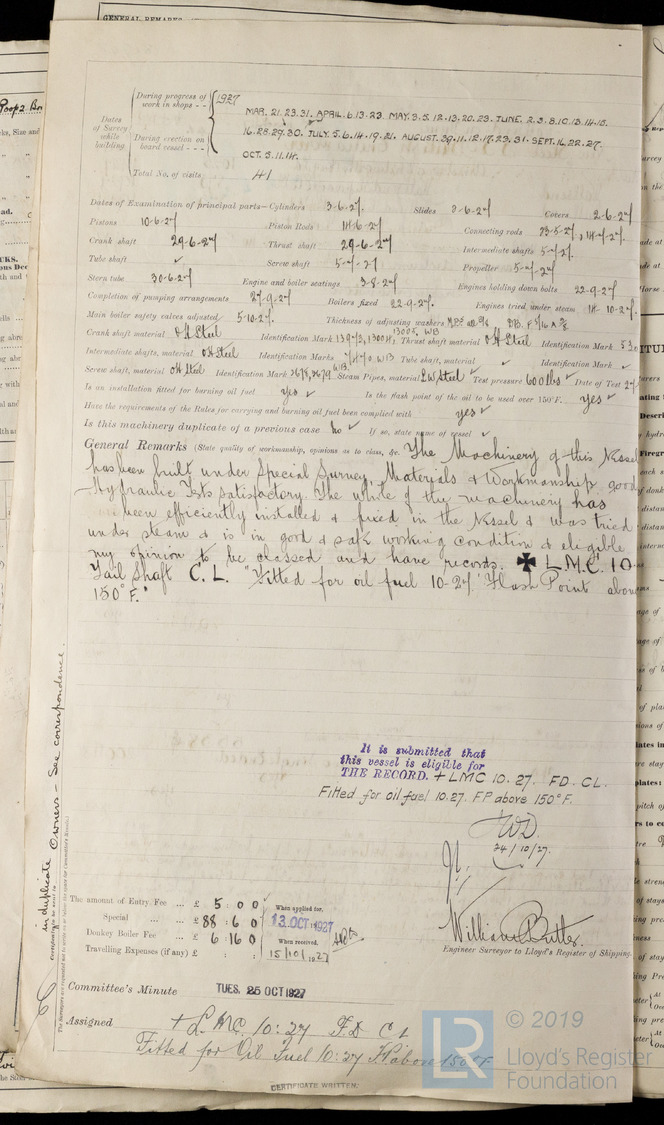 GENERAL REMARKS
Poop & Bo
During progress of
work in shops - -
1927
MAR. 21. 23. 31. APRIL. 6. 13. 23. MAY. 3. 5. 12. 13. 20. 23. JUNE. 2. 3. 8. 10. 13. 14. 15.
Dates
of Survey
while
building
During erection on
board vessel - - -
16. 28. 29. 30. JULY. 5. 6. 14. 19. 21. AUGUST. 11. 12. 17. 23. 31. SEPT. 16. 22. 27.
OCT. 5. 11. 14.
Total No. of visits
41
Dates of Examination of principal parts—Cylinders 3-6-27. Slides 2-6-27 Covers 2-6-27
Pistons 10-6-27 Piston Rods 14-6-27 Connecting rods
Crank shaft 29-6-27 Thrust shaft 29-6-27 Intermediate shafts 5-7-27.
Tube shaft ✓ Screw shaft 5-7-27 Propeller 5-7-27
Stern tube 30-6-27 Engine and boiler seatings 3-8-27 Engines holding down bolts 22-9-27
Completion of pumping arrangements 27-9-27 Boilers fixed 22-9-27. Engines tried under steam 14-10-27.
Main boiler safety valves adjusted 5-10-27. Thickness of adjusting washers
Crank shaft material O H Steel Identification Mark Thrust shaft material O H Steel Identification Mark
Intermediate shafts, material O H Steel Identification Marks Tube shaft, material ✓ Identification Mark ✓
Screw shaft, material O H Steel Identification Mark 3678, 3679 Steam Pipes, material L W Steel Test pressure 600 lbs ✓ Date of Test
Is an installation fitted for burning oil fuel yes ✓ Is the flash point of the oil to be used over 150°F. yes ✓
Have the requirements of the Rules for carrying and burning oil fuel been complied with yes ✓
Is this machinery duplicate of a previous case no ✓ If so, state name of vessel ✓
General Remarks (State quality of workmanship, opinions as to class, &c. The Machinery of this Vessel
has been built under Special Survey, Materials & Workmanship good
Hydraulic Tests satisfactory. The whole of the machinery has
been efficiently installed & fixed in the Vessel & was tried
under steam & is in good & safe working condition & eligible
my opinion to be classed and have records. ✠ L.M.C. 10
Tail Shaft C. L. "Fitted for oil fuel 10-27. Flash Point above
150°F."
It is submitted that
this vessel is eligible for
THE RECORD. + LMC 10. 27. FD. CL.
Fitted for oil fuel 10.27. F.P. above 150°F.
24/10/27.
The amount of Entry Fee ... £ 5 : 0 0
Special ... ... £ 88 : 6 0
Donkey Boiler Fee ... £ 6 : 16 0
Travelling Expenses (if any) £ : :
When applied for,
13. OCT 1927
When received,
15/10/1927
William Butler.
Engineer Surveyor to Lloyd's Register of Shipping.
Committee's Minute TUES. 25 OCT 1927
Assigned + L.M.C. 10:27 F.D. C L
Fitted for Oil Fuel 10:27 F.P. above 150°F
CERTIFICATE WRITTEN.
in duplicate Owners - See correspondence.
LR
© 2019
Lloyd's Register
Foundation